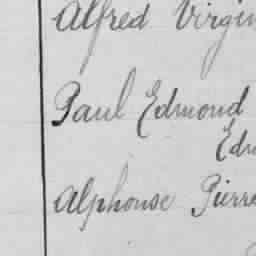 Alfred Virgin
Paul Edmond
Edm
Alphonse Pierre